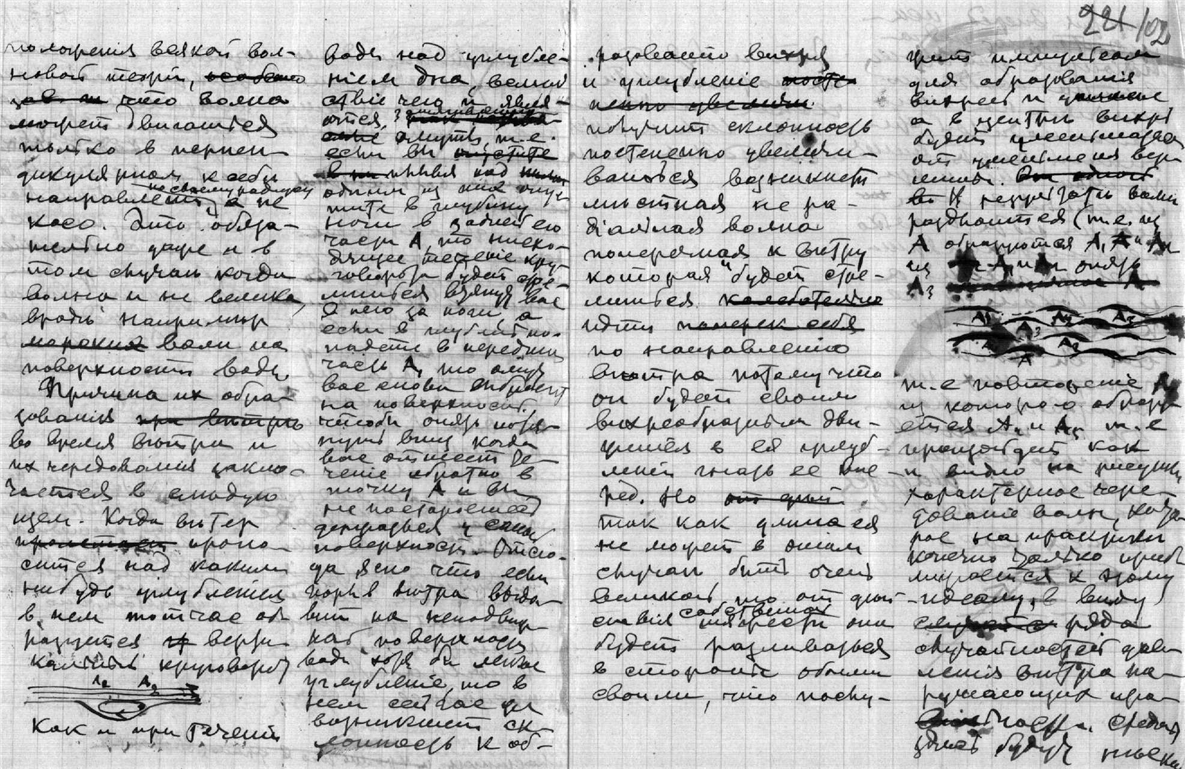 положенія всякой вол-
новой теоріи,
что волна
можетъ двигаться
только в перпен-
дикулярномъ к себѣ
направленіи по своему радіусу а не
косо. Это обяза-
тельно даже и в
том случаѣ когда
волна и не велика,
вродѣ например
валы на
поверхности воды.
Причина их обра-
зованія при вѣтрѣ
во время вѣтра и
их чередованія заклю-
чается в слѣдую
щем. Когда вѣтер
проно-
сится над каким
нибудь углубленіем
в нем тотчас об
разуется верти-
кальный круговорот
A2 A3
Как и при теченіи
воды над углубле-
ніем дна, вслѣд
ствіе чего и явля-
ются
омуты, т. е.
если вы опустите
одним из них опу-
стите в глубину
ноги в задней его
части А, то нисхо-
дящее теченіе кру-
говорота будет стре-
миться втянуть вас
в него за ноги, а
если в глубинѣ по-
падете в переднюю
часть А, то омут
вас снова выброситъ
на поверхность
чтобы опять потя-
нуть вниз когда
вас отнесет те-
ченіе обратно в
точку А и вы
не постараетесь
держаться у самой
поверхности. Отсю-
да ясно что если
порыв вѣтра выда-
вит на неподвиж
ной поверхности
воды хотя бы легкое
углубленіе, то в
нем сейчас же
возникнет ск-
лонность к об-
разованію вихря
и углубленіе посте-
пенно увелич
получит склонность
постепенно увеличи-
ваться возникнет
мѣстная не ра-
діальная волна
поперечная к вѣтру
которая будет стре-
миться колебательно
идти поперек себя
по направленію
вѣтра потому что
он будет своим
вихреобразным дви-
женіем в ея углуб-
леніи гнать ее впе-
ред. Но
так как длина ея
не может в этом
случаѣ быть очень
великой, то от дѣй-
ствія собственной тяжести она
будет разливаться
в стороны обоими
своими, что послу-
жит импульсом
для образованія
вихрей и
а в центрѣ вихрь
будет уменьшаться
от уменьшенія вер-
раздвоится (т. е. из
А образуются А1 А2 и
из А и А опять
А3
A1 A2 A3
т. е повтореніе А
из котораго образу
ется А4 и А5 т. е
произойдет как
и видно на рисункѣ
характерное чере-
дованіе волн, кото-
рое на практикѣ
конечно только приб-
лизится к этому
идеалу, в виду
ряда
случайностей дав-
ленія вѣтра на-
рушающих пра-
вильность. Средняя
будут